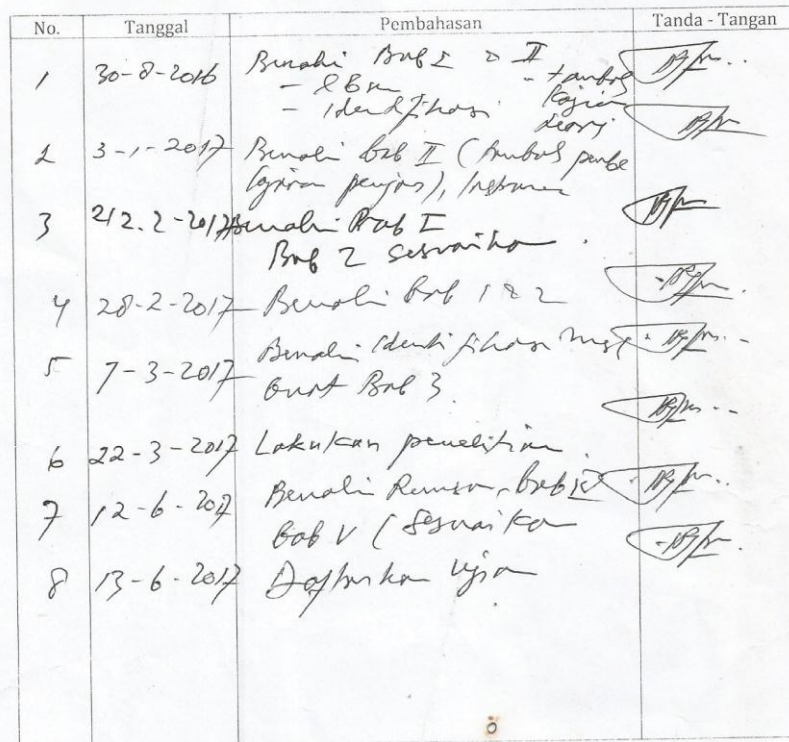 No. Tanggal Pembahasan Tanda - Tangan
1 30-8-2016 Benahi Bab I & II
- LBM - tambah
- Identifikasi Kajian
teori
2 3-1-2017 Benahi bab II (tambah pembe
lajaran penjas), Instrumen
3 212.2-2017 Benahi Bab I
Bab 2 sesuaikan
4 28-2-2017 Benahi bab 1 & 2
5 7-3-2017 Benahi Identifikasi
buat Bab 3.
6 22-3-2017 Lakukan penelitian
7 12-6-2017 Benahi bab IV
bab V (Sesuaikan
8 13-6-2017 Daftarkan Ujian